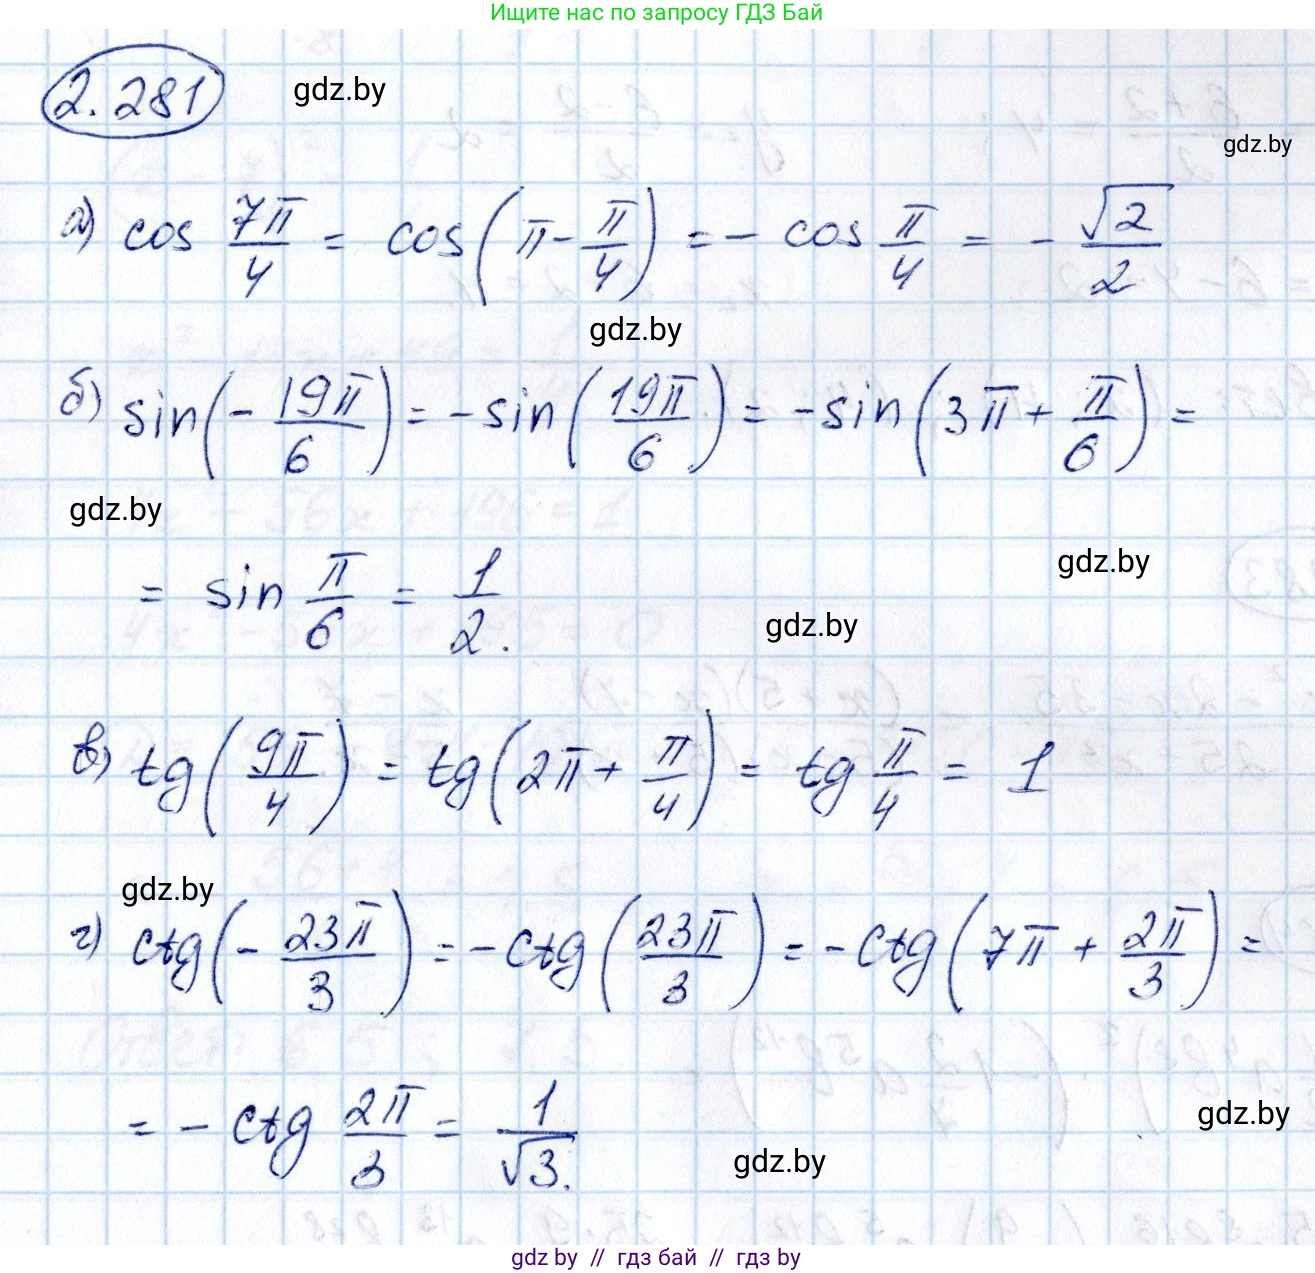 Ищите нас по запросу ГДЗ Бай
2.281
gdz.by
gdz.by
а) cos 7π/4 = cos(π - π/4) = - cos π/4 = - √2/2
gdz.by
б) sin(- 19π/6) = - sin(19π/6) = - sin(3π + π/6) =
gdz.by
gdz.by
= sin π/6 = 1/2.
gdz.by
в) tg(9π/4) = tg(2π + π/4) = tg π/4 = 1
gdz.by
г) ctg(- 23π/3) = - ctg(23π/3) = - ctg(7π + 2π/3) =
= - ctg 2π/3 = 1/√3.
gdz.by
gdz.by
gdz.by // гдз бай // гдз by